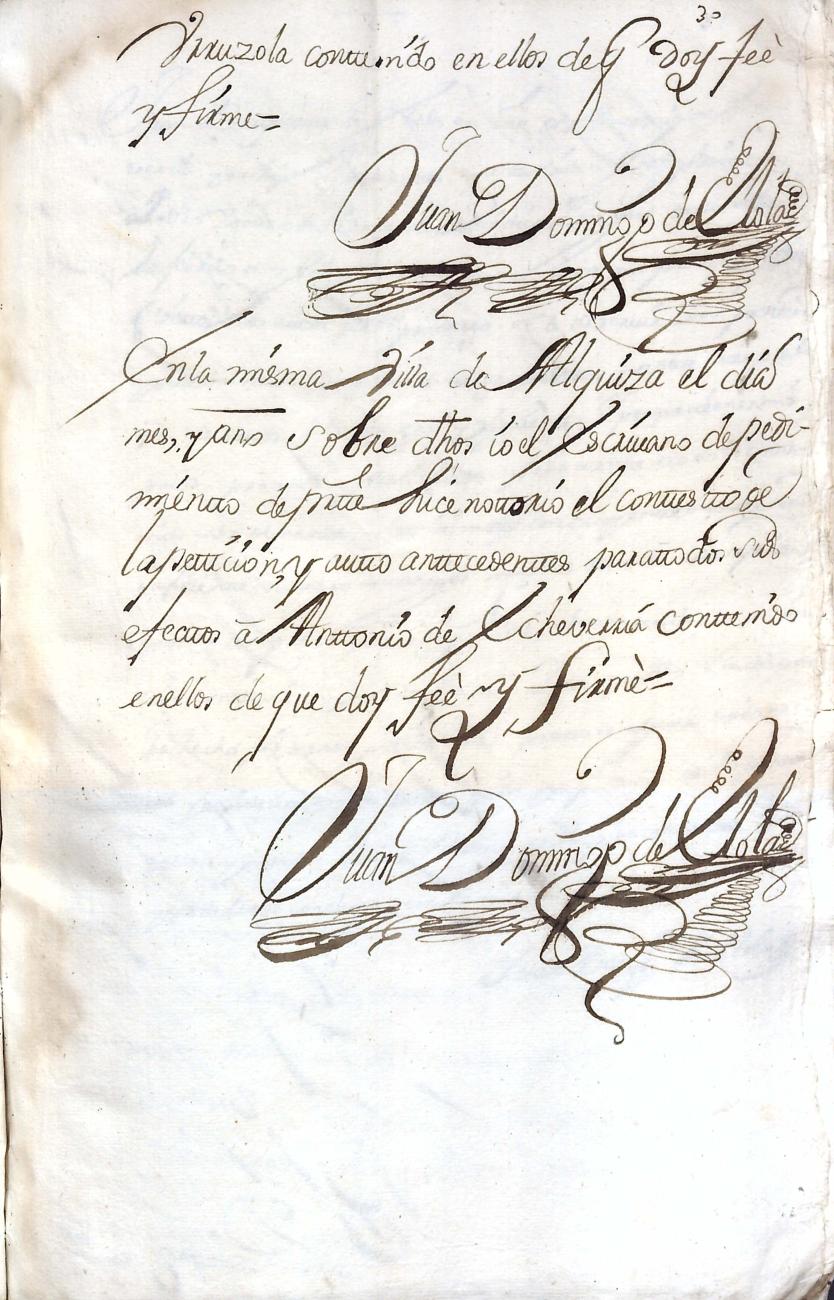 3º
Urruzola conttenido en ellos de q doy feè
y firme=
Juan Domingo de
En la misma Villa de Alquiza el dia
mes, y año sobre dhos io el Escriuano de pedi-
miento de partte hice nottorio el conttestto de
la petticion, y autto anttecedenttes para ttodos sus
efecttos a Anttonio de Echeverria conttenido
en ellos de que doy feè y firmè=
Juan Domingo de